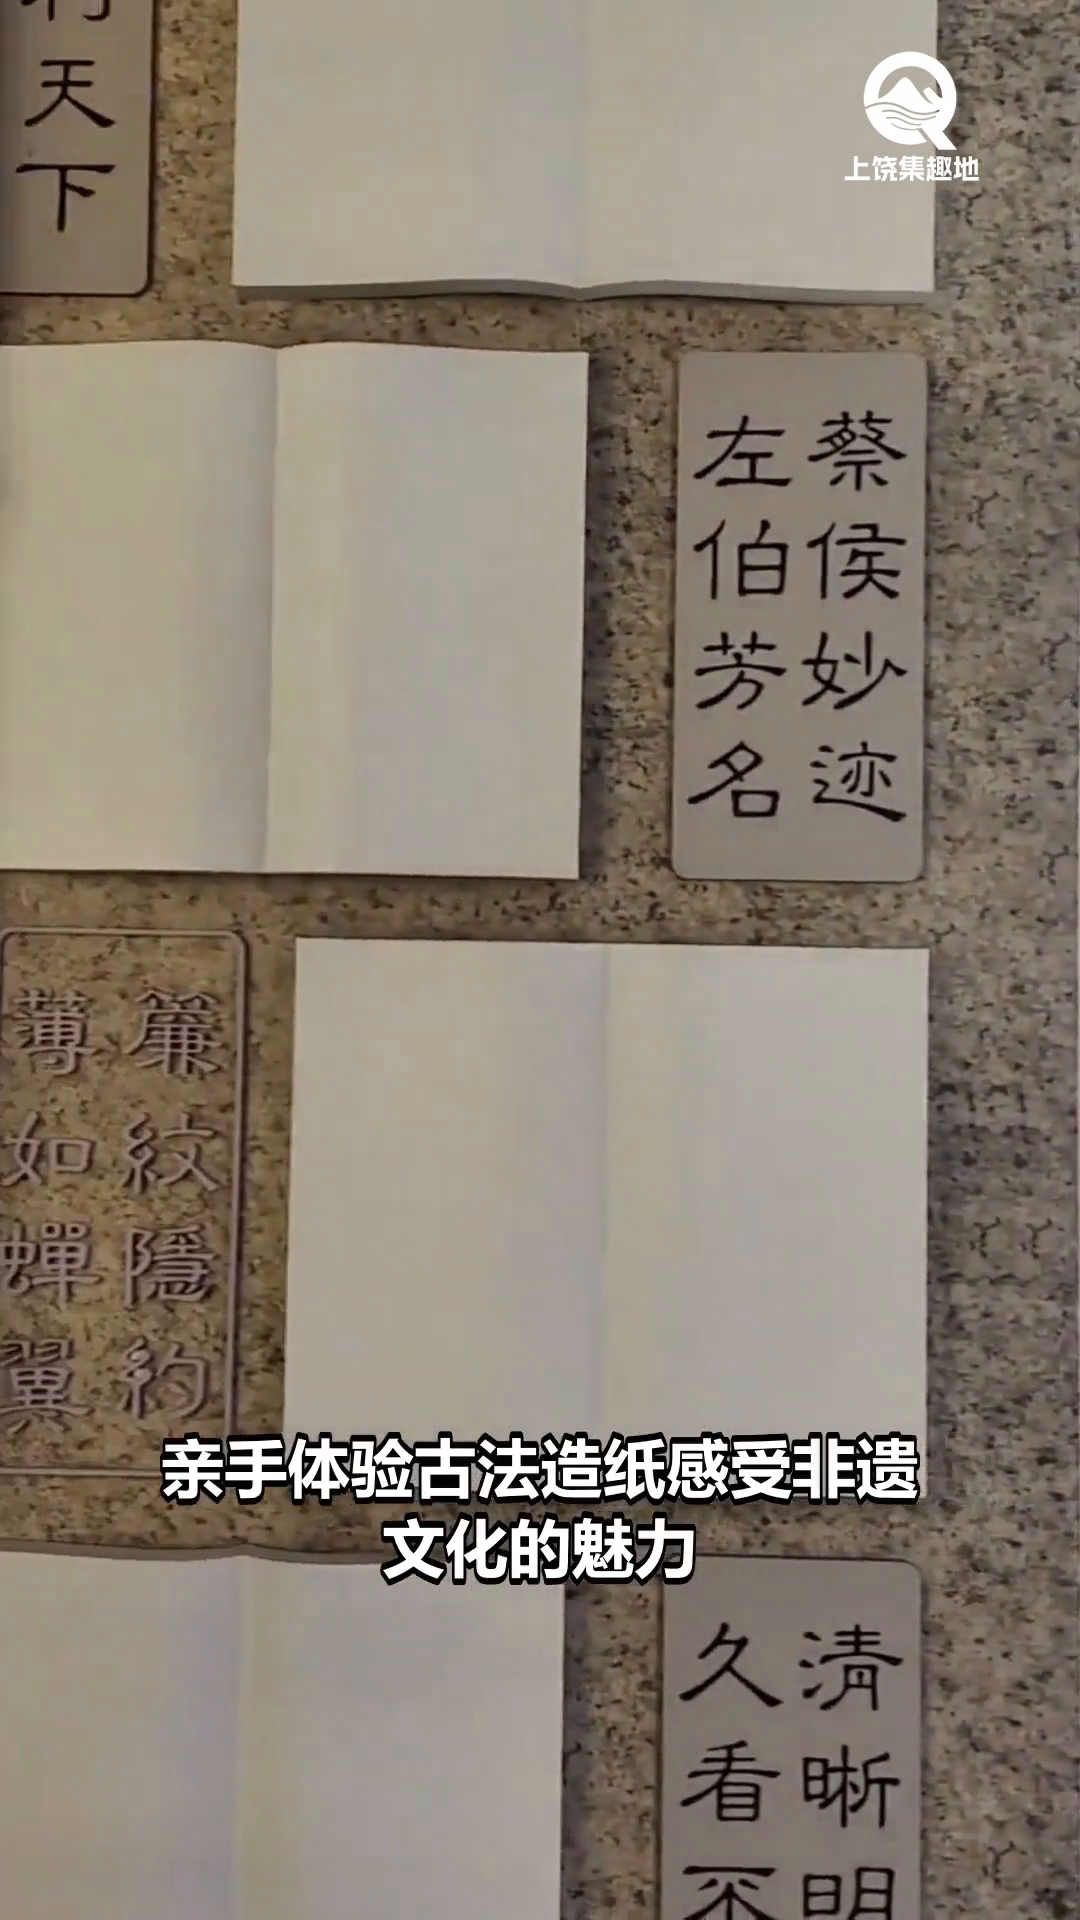 上饶集趣地
天下
蔡侯妙迹
左伯芳名
簾紋隱約
薄如蟬翼
亲手体验古法造纸感受非遗
文化的魅力
清晰明
久看不